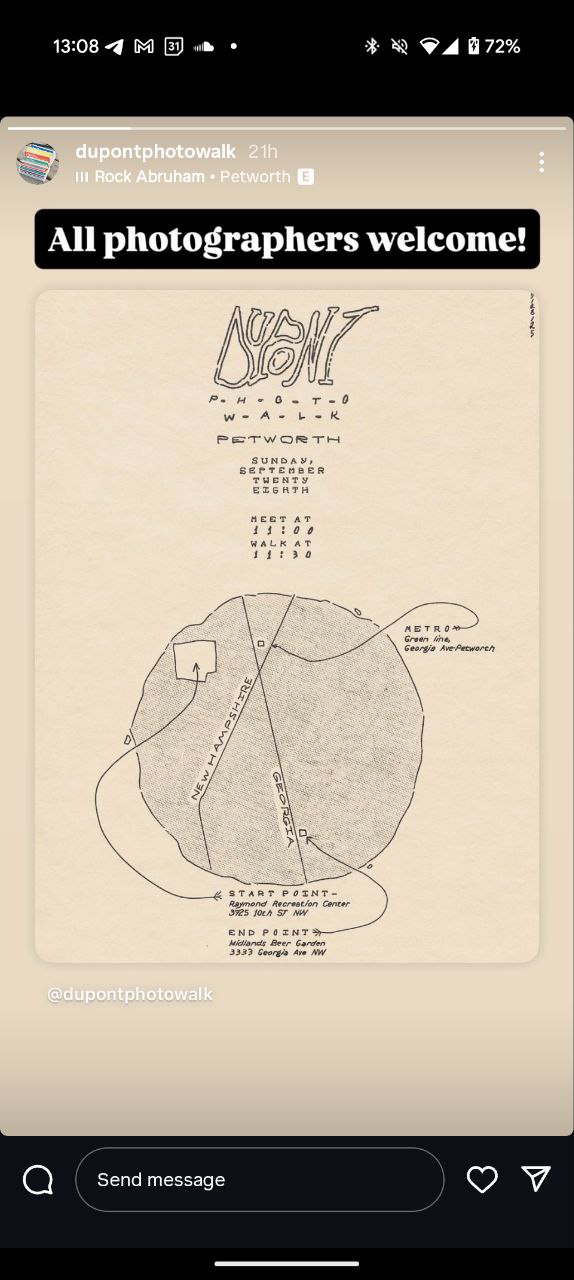 13:08
31
72%
dupontphotowalk 21h
Rock Abruham • Petworth E
All photographers welcome!
9/28/25
DUPONT
P - H - O - T - O
W - A - L - K
PETWORTH
SUNDAY,
SEPTEMBER
TWENTY
EIGHTH
MEET AT
11:00
WALK AT
11:30
METRO
Green line,
Georgia Ave-Petworth
NEW HAMPSHIRE
GEORGIA
START POINT-
Raymond Recreation Center
3725 10th ST NW
END POINT
Midlands Beer Garden
3333 Georgia Ave NW
@dupontphotowalk
Send message